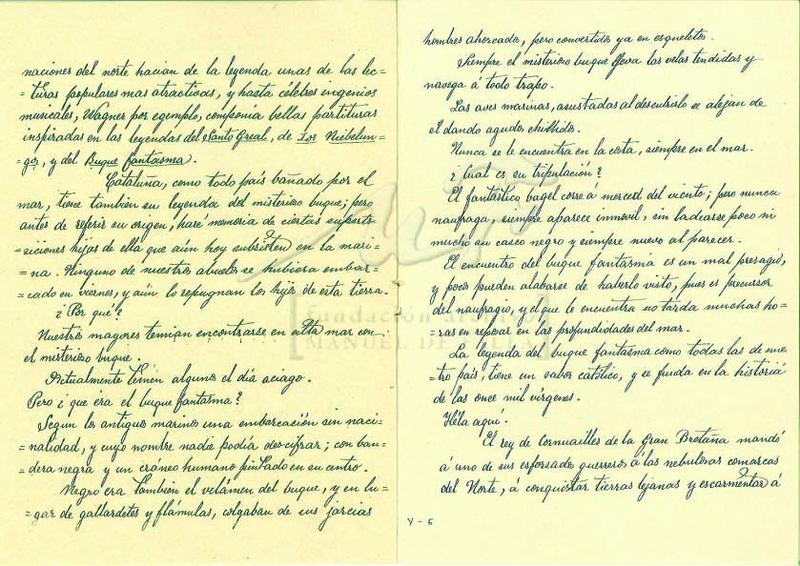 naciones del norte hacian de la leyenda unas de las lec-
=turas populares mas atractivas, y hasta célebres ingenios
musicales, Wagner por egemplo, componia bellas partituras
inspiradas en las leyendas del Santo Greal, de Los Niebelun-
ges, y del Buque fantasma.
Cataluña, como todo pais bañado por el
mar, tiene tambien su leyenda del misterioso buque; pero
antes de referir su origen, haré memoria de ciertas supers-
=ticiones hijas de ella que aún hoy subsisten en la mari-
=na. Ninguno de nuestros abuelos se hubiera embar-
=cado en viernes, y aún lo repugnan los hijos de esta tierra.
¿Por qué?
Nuestros mayores temian encontrarse en alta mar con
el misterioso buque.
Actualmente temen algunos el dia aciago.
Pero ¿que era el buque fantasma?
Segun los antiguos marinos una embarcación sin naci-
=nalidad, y cuyo nombre nadie podia descifrar; con ban-
=dera negra y un craneo humano pintado en su centro.
Negro era tambien el velámen del buque, y en lu-
=gar de gallardetes y flámulas, colgaban de sus jarcias
hombres ahorcados, pero convertidos ya en esqueletos.
Siempre el misterioso buque lleva las velas tendidas y
navega á todo trapo.
Las aves marinas, asustadas al descubrirlo se alejan de
el dando agudos chillidos.
Nunca se le encuentra en la costa, siempre en el mar.
¿Cual es su tripulación?
El fantástico bagel corre á merced del viento; pero nunca
naufraga, siempre aparece inmovil, sin ladiarse poco ni
mucho su casco negro y siempre nuevo al parecer.
El encuentro del buque fantasma es un mal presagio,
y pocos pueden alabarse de haberlo visto, pues es precursor
del naufragio, y el que le encuentra no tarda muchas ho-
=ras en reposar en las profundidades del mar.
La leyenda del buque fantasma como todas las de nues-
=tro pais, tiene un sabor católico, y se funda en la historia
de las once mil virgenes.
Hela aquí.
El rey de Cornuailles de la Gran Bretaña mandó
á uno de sus esforsados guerreros á las nebulosas comarcas
del Norte, á conquistar tierras lejanas y escarmentar á
V-6
fundación archivo
MANUEL DE FALLA